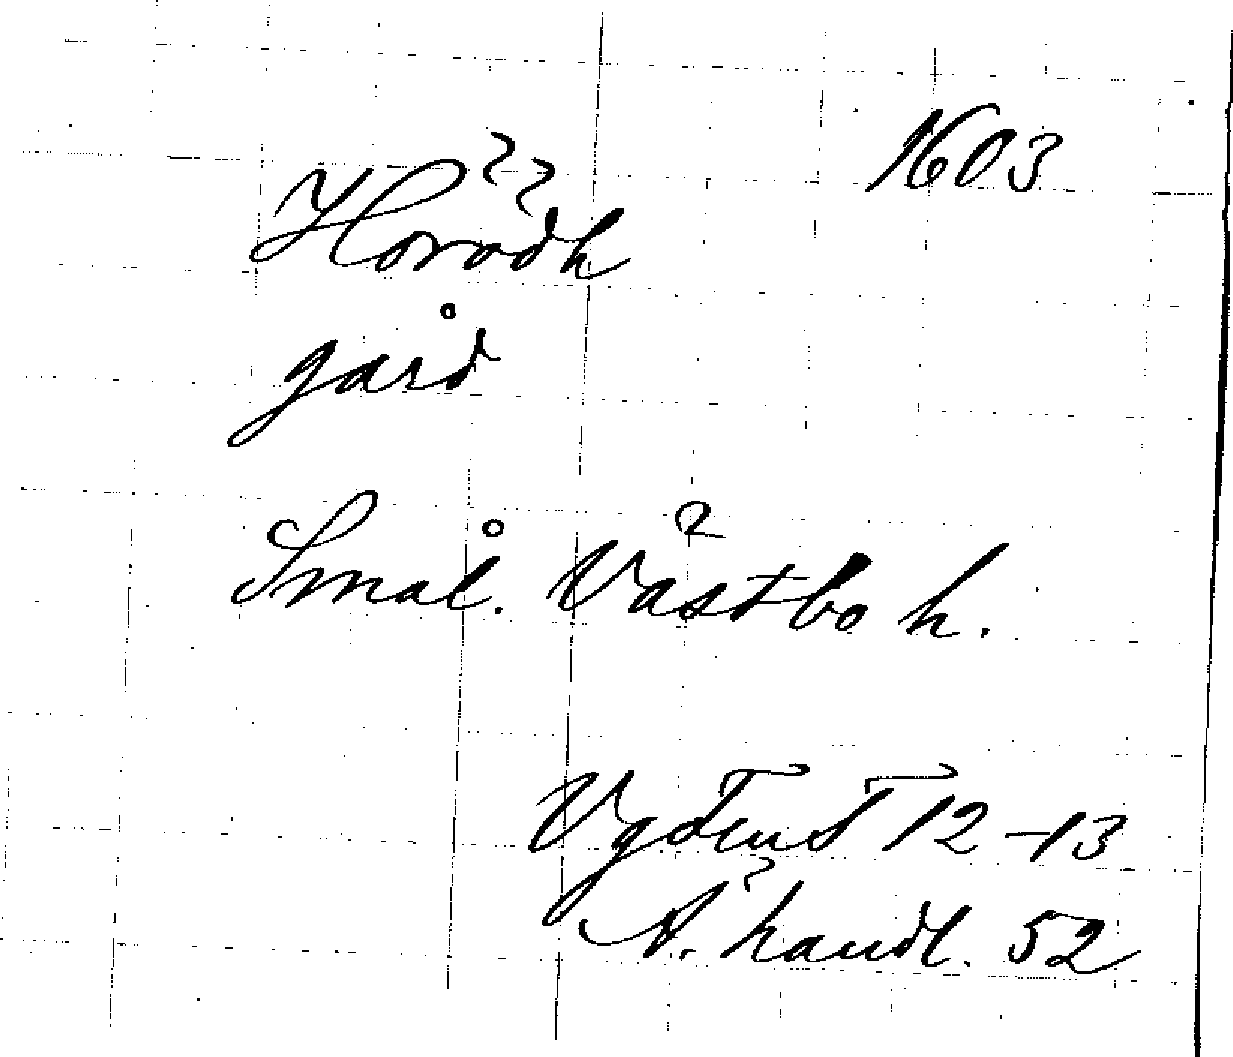 1603
Horödh
gård
Smål. Västbo h.
12-13
handl. 52